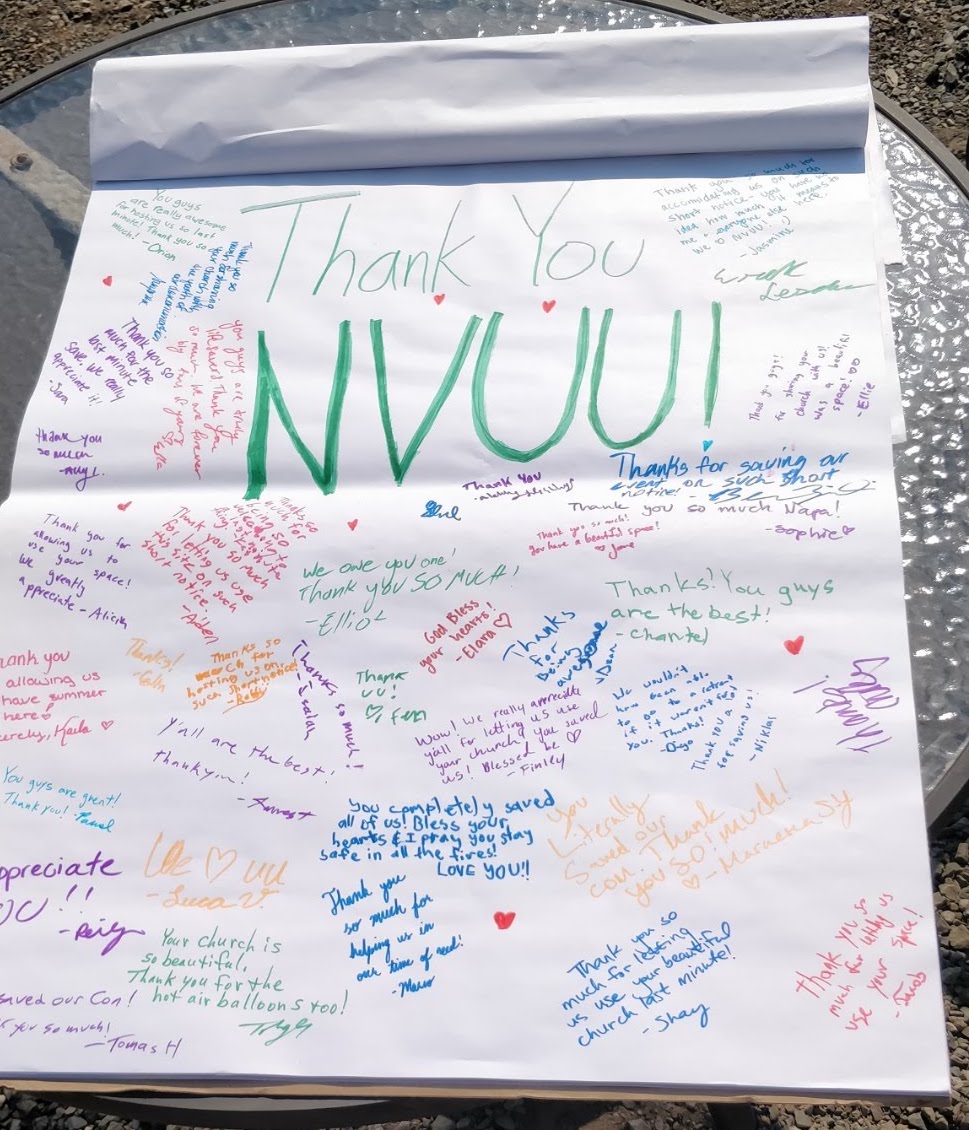 Thank You
NVUU!
You guys
are really awesome
for hosting us so last
minute! Thank you so
much! -Orion
Thank you so
much for sharing
your church with
the youth of
Thank you so much for
accomodating us on such
short notice - you have no
idea how much it means to
me + everyone else here.
We ♡ NVUU! :)
-Jasmine
Thank you so
much for the
last minute
save. We really
appreciate it!
-Sara
you guys are truly
lifesavers! Thank you
so much. We are forever
Ella
Thank you guys!
for sharing your
church with us!
was a beautiful
space!
-Ellie
thank you
so much
Thanks for saving our
event on such short
notice! -
Thank You
Thank you so much Napa!
-Sophie♡
Thank you so much!
You have a beautiful space!
♡Jane
Thank you for
allowing us to
use your space!
We greatly
appreciate -Alicia
Thank you so much
for letting us use
this site on such
short notice.
-Aiven
We owe you one!
Thank you SO MUCH!
-Elliot
God Bless
your hearts!
-Elara ♡
Thanks
for
being
awesome
-Dean
Thanks! You guys
are the best!
-Chantel
ank you
allowing us
have summer
here!
cerely, Kaila ♡
Thanks!
-Colin
Thanks so
much for
hosting us on
such short notice!
-Robby
Thanks so much!
-Isaiah
Thank
UU!
♡, fern
Wow! We really appreciate
y'all for letting us use
your church, you saved
us! Blessed be ♡
-Finley
We wouldn't
have been able
to go to a retreat
if it weren't for
you. Thanks!
-Diego
Thank you all
for saving us!
-Niklas
Thank
you!
Y'all are the best,
thank you!
You guys are great!
Thank you!
You completely saved
all of us! Bless your
hearts & I pray you stay
safe in all the fires!
LOVE YOU!!
You
Literally
Saved our
con. Thank
you SO! much!
♡-Marnena Sy
ppreciate
OU!!
-Reily
We ♡ UU
-Luca V.
Thank you
so much for
helping us in
our time of need!
-Maro
Your church is
so beautiful.
Thank you for the
hot air balloons too!
Thank you so
much for letting
us use your beautiful
church last minute!
-Shay
Thank you so
much for letting us
use your space!
-Jacob
saved our Con!
you so much!
-Tomas H